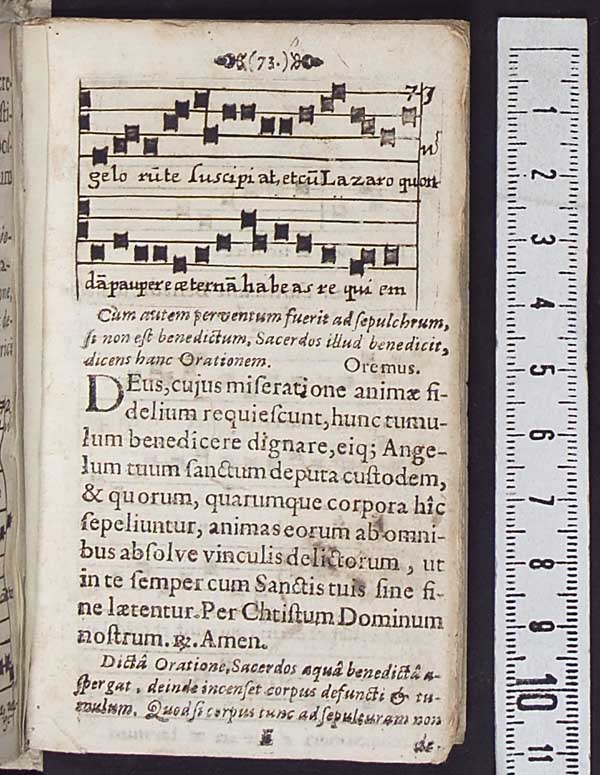 (73.)
73
gelorũ te suscipiat, et cũ Lazaro quon
dã paupere æternã habeas requiem
Cùm autem perventum fuerit ad sepulchrum,
si non est benedictum, Sacerdos illud benedicit,
dicens hanc Orationem. Oremus.
DEus, cujus miseratione animæ fi-
delium requiescunt, hunc tumu-
lum benedicere dignare, eiq; Ange-
lum tuum sanctum deputa custodem,
& quorum, quarumque corpora hîc
sepeliuntur, animas eorum ab omni-
bus absolve vinculis delictorum, ut
in te semper cum Sanctis tuis sine fi-
ne lætentur. Per Christum Dominum
nostrum. ℟. Amen.
Dictâ Oratione, Sacerdos aquâ benedictâ a-
spergat, deinde incenset corpus defuncti & tu-
mulum. Quod si corpus tunc ad sepulturam non
1
2
3
4
5
6
7
8
9
10
11